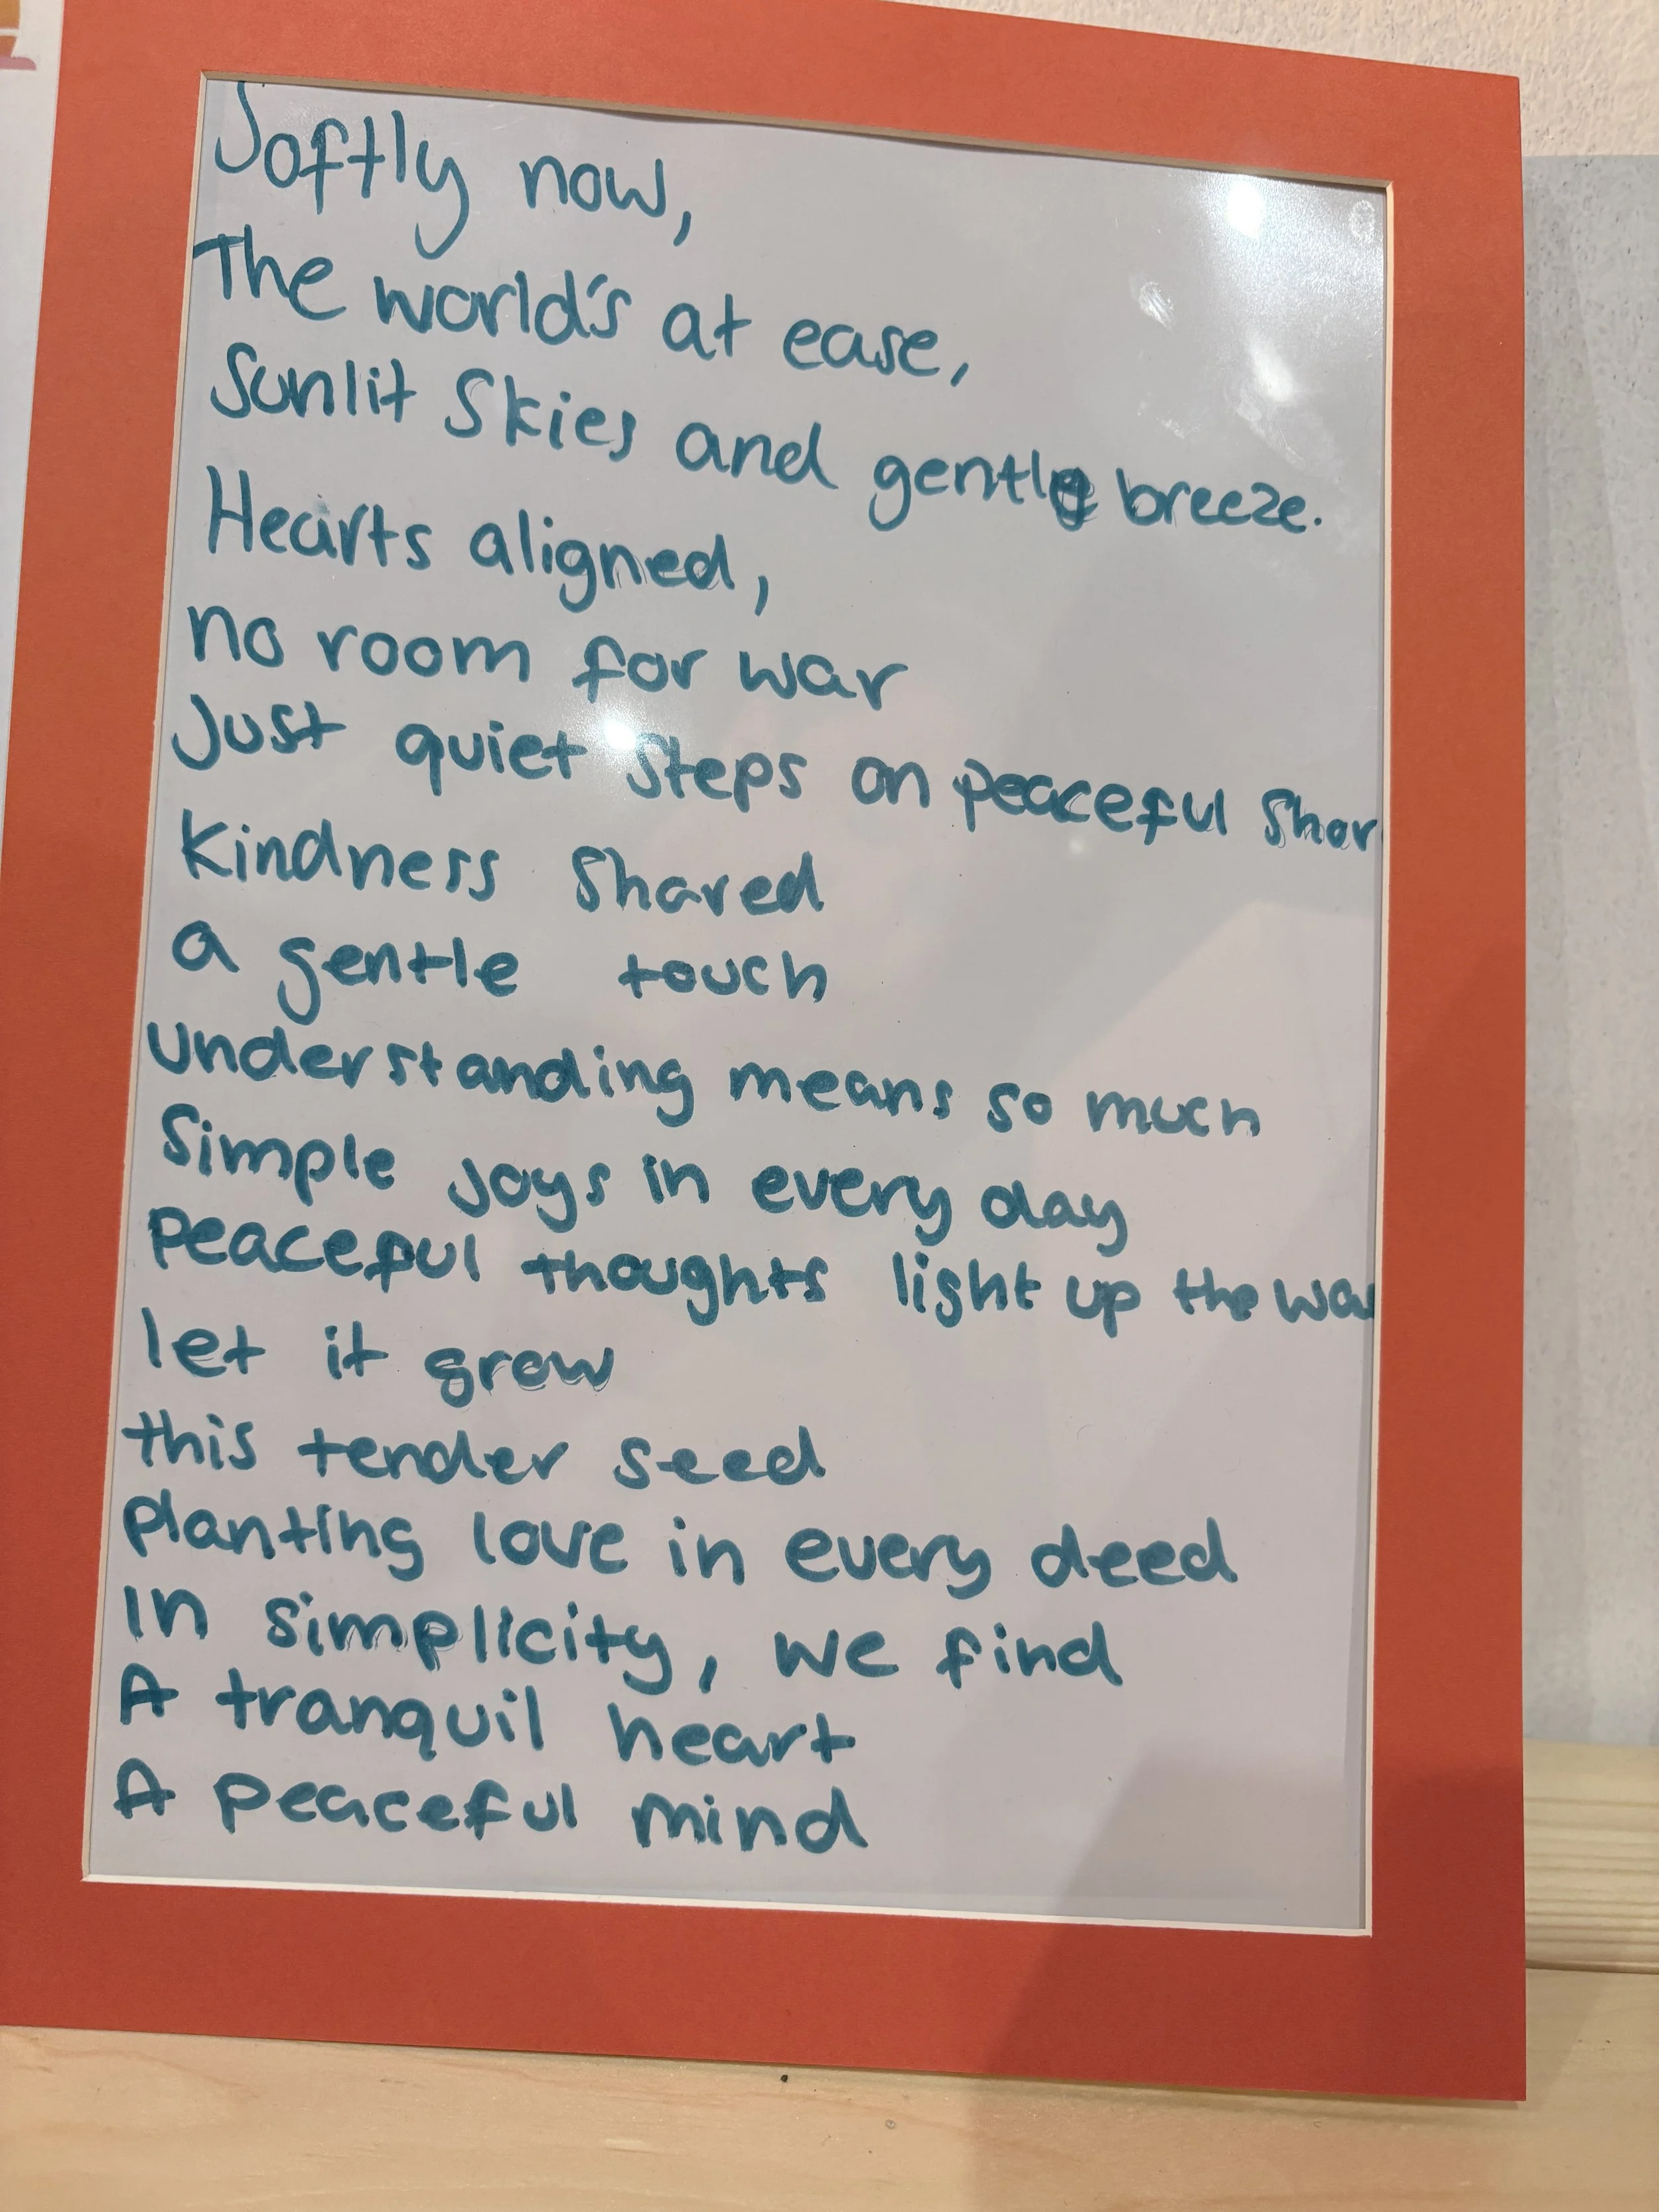 Softly now,
The world's at ease,
Sunlit Skies and gentle breeze.
Hearts aligned,
no room for war
Just quiet Steps on peaceful Shor
Kindness Shared
a gentle touch
understanding means so much
Simple Joys in every day
Peaceful thoughts light up the wa
let it grow
this tender seed
planting love in every deed
In simplicity, we find
A tranquil heart
A peaceful mind